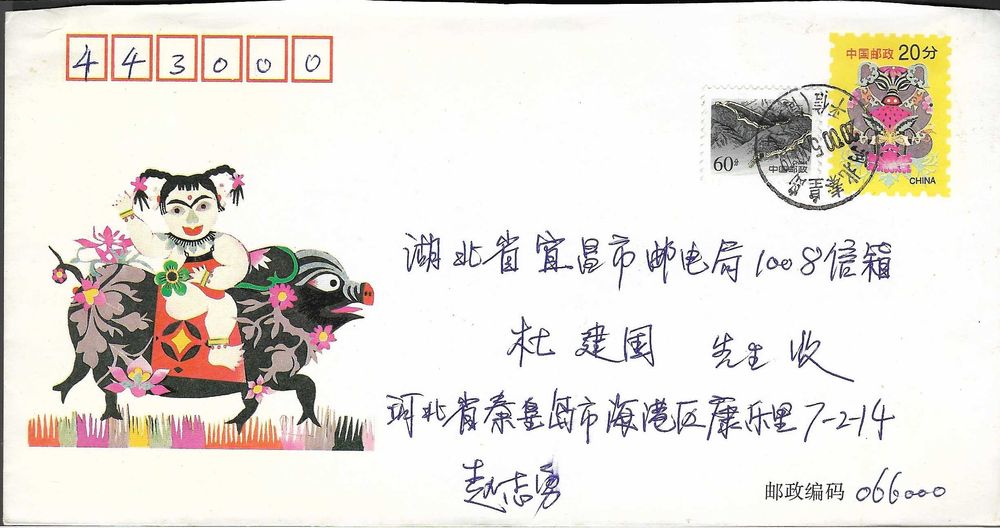 443000
中国邮政 20分
60分
中国邮政
CHINA
湖北省宜昌市邮电局1008信箱
杜建国 先生 收
河北省秦皇岛市海港区康乐里7-2-14
赵志勇
邮政编码 066000